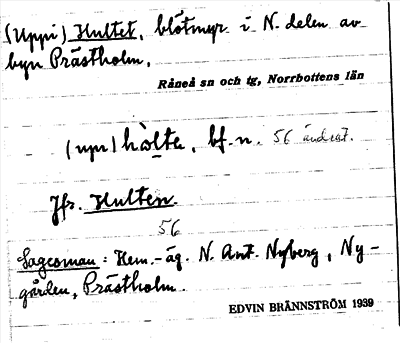 (Uppi) Hultet, blötmyr i N. delen av
byn Prästholm.
Råneå sn och tg, Norrbottens län
(upı) hòlte, bf. n. 56 ändrat.
Jfr. Hulten.
56
Sagesman: Hem.-äg. N. Ant. Nyberg, Ny-
gården, Prästholm.
EDVIN BRÄNNSTRÖM 1939